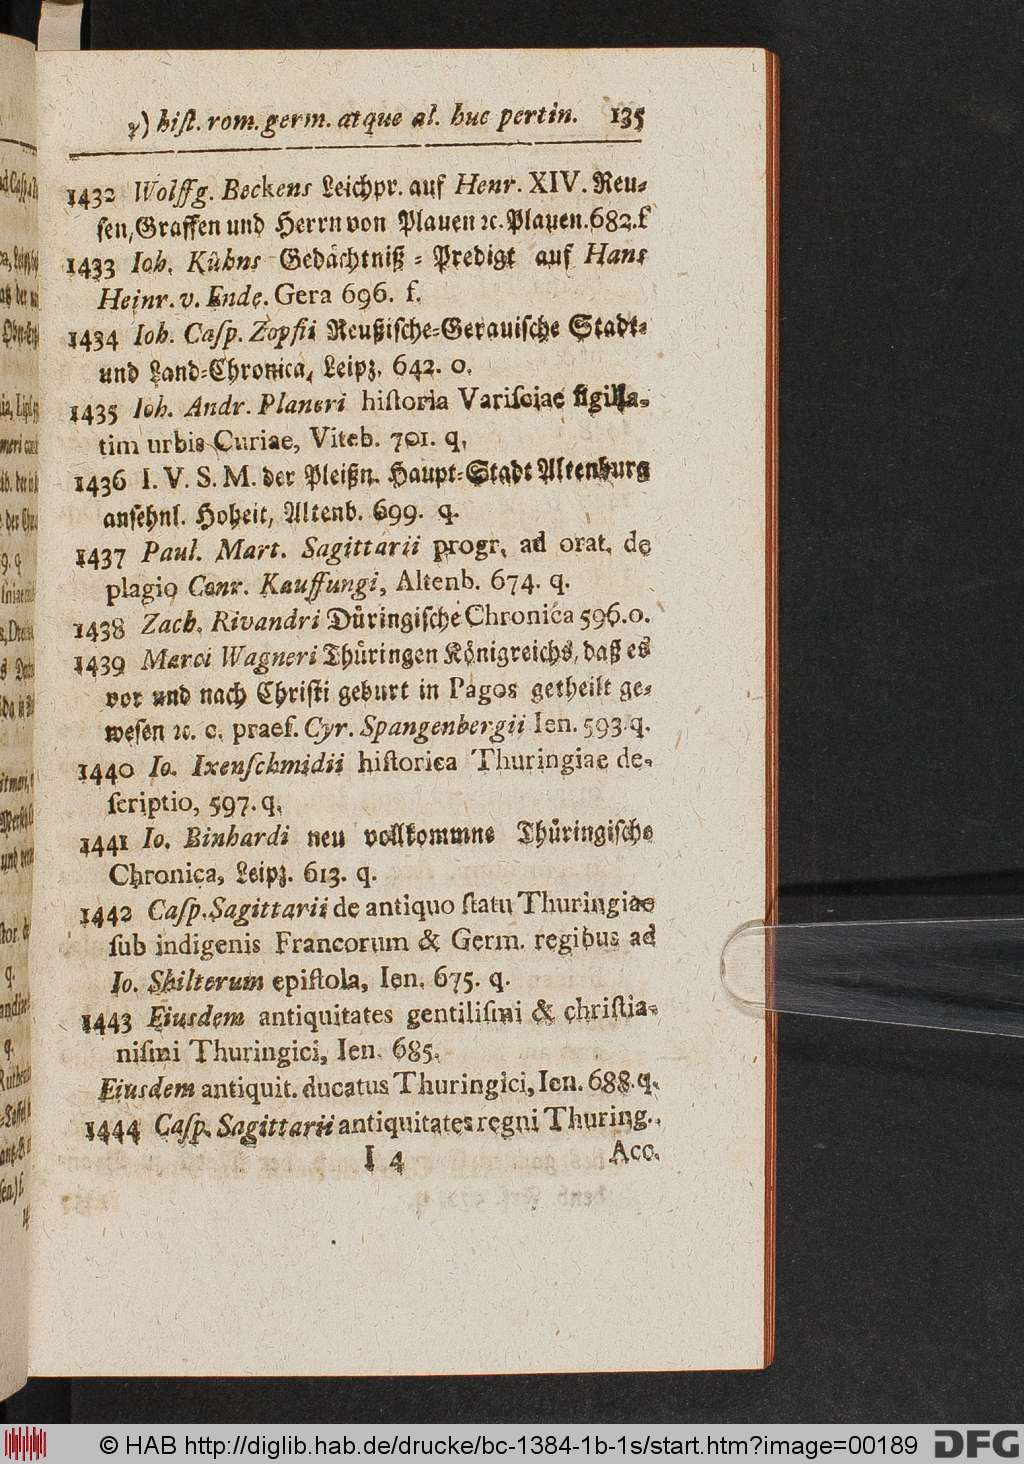 ψ) hiſt. rom. germ. atque al. huc pertin. 135
1432 Wolffg. Beckens Leichpr. auf Henr. XIV. Reu-
ſen, Graffen und Herrn von Plauen ꝛc. Plauen. 682. f
1433 Ioh. Kühns Gedächtniß-Predigt auf Hans
Heinr. v. Ende. Gera 696. f.
1434 Ioh. Caſp. Zopfii Reußiſche-Gerauiſche Stadt-
und Land-Chronica, Leipz. 642. o.
1435 Ioh. Andr. Planeri hiſtoria Variſciae ſigilla-
tim urbis Curiae, Viteb. 701. q.
1436 I. V. S. M. der Pleißn. Haupt-Stadt Altenburg
anſehnl. Hoheit, Altenb. 699. q.
1437 Paul. Mart. Sagittarii progr. ad orat. de
plagio Conr. Kauffungi, Altenb. 674. q.
1438 Zach. Rivandri Düringiſche Chronica 596. o.
1439 Marci Wagneri Thüringen Königreichs, daß es
vor und nach Chriſti geburt in Pagos getheilt ge-
weſen ꝛc. c. praef. Cyr. Spangenbergii Ien. 593. q.
1440 Io. Ixenſchmidii hiſtorica Thuringiae de-
ſcriptio, 597. q.
1441 Io. Binhardi neu vollkommne Thüringiſche
Chronica, Leipz. 613. q.
1442 Caſp. Sagittarii de antiquo ſtatu Thuringiae
ſub indigenis Francorum & Germ. regibus ad
Io. Shilterum epiſtola, Ien. 675. q.
1443 Eiusdem antiquitates gentiliſmi & chriſtia-
niſmi Thuringici, Ien. 685.
Eiusdem antiquit. ducatus Thuringici, Ien. 688. q.
1444 Caſp. Sagittarii antiquitates regni Thuring.,
I 4 Acc.
© HAB http://diglib.hab.de/drucke/bc-1384-1b-1s/start.htm?image=00189 DFG